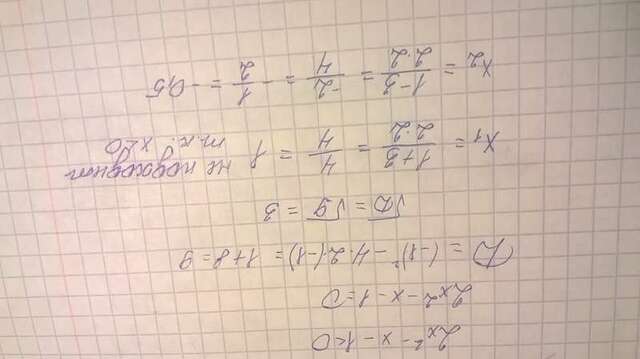 2x² - x - 1 < 0
2x² - x - 1 = 0
D = (-1)² - 4·2·(-1) = 1 + 8 = 9
√D = √9 = 3
x₁ = (1+3)/(2·2) = 4/4 = 1 не подходит
т.к. x<0
x₂ = (1-3)/(2·2) = -2/4 = -1/2 = -0,5